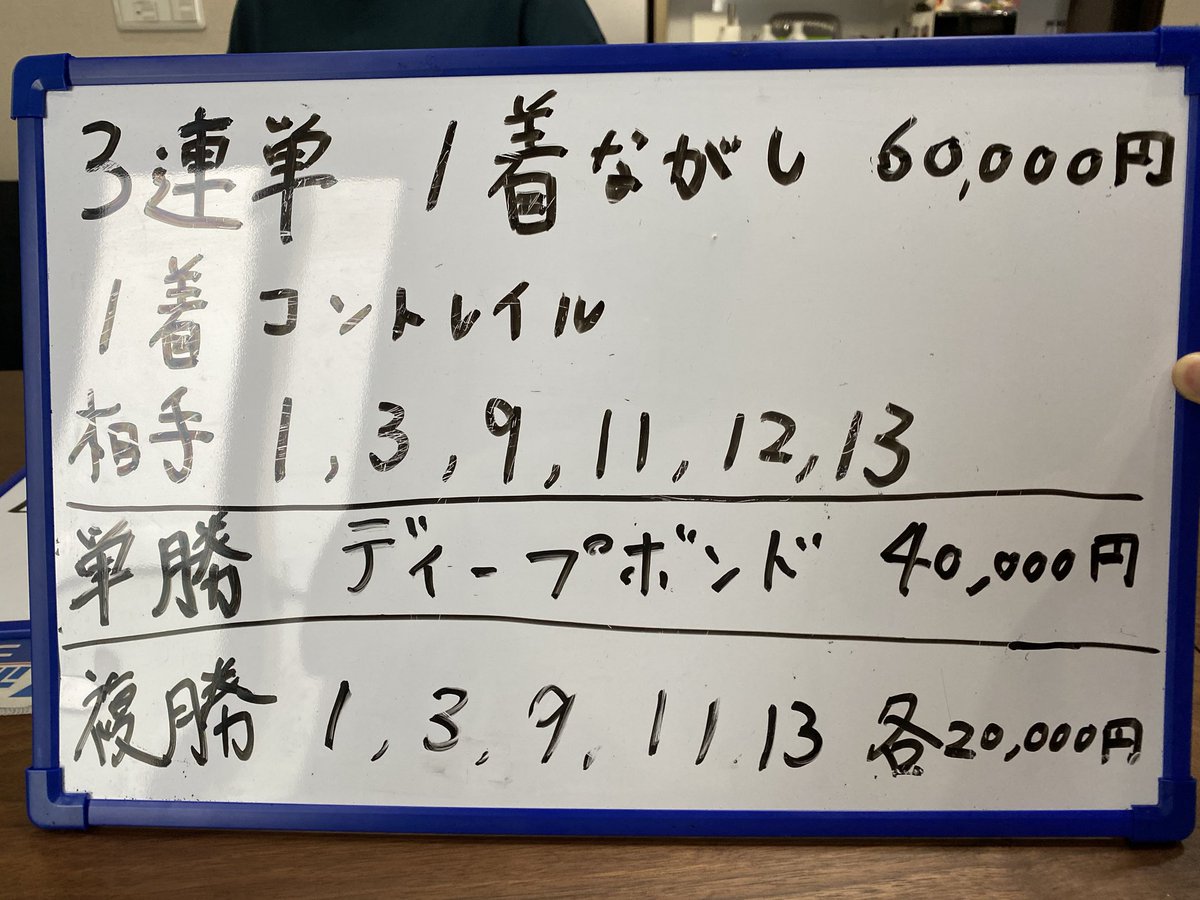 3連単 1着ながし 60,000円
1着 コントレイル
相手 1, 3, 9, 11, 12, 13
単勝 ディープボンド 40,000円
複勝 1, 3, 9, 11 13 各20,000円